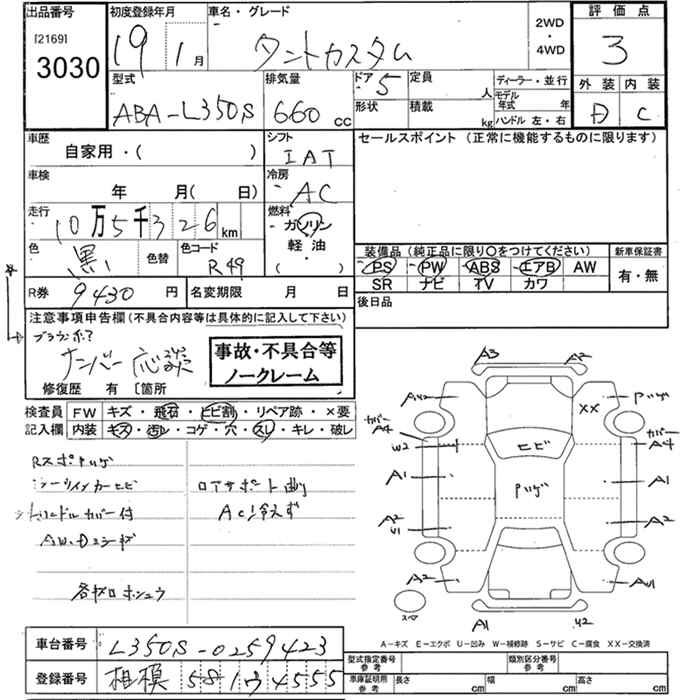 出品番号 初度登録年月 車名・グレード 2WD・4WD 評価点
[2169] 3030 19 1月 タントカスタム 3
型式 排気量 ドア 5 定員 人 ディーラー・並行 外装 内装
ABA-L350S 660 cc 形状 積載 kg モデル年式 年 ハンドル 左・右 D C
車歴 シフト セールスポイント(正常に機能するものに限ります)
自家用・( ) IAT
車検 冷房
年 月( 日) AC
走行 燃料
10万5千326km ガソリン
軽油
( )
色 黒 色替 色コード R49
装備品(純正品に限り○をつけてください) 新車保証書
PS PW ABS エアB AW 有・無
SR ナビ TV カワ
R券 9430円 名変期限 月 日 後日品
注意事項申告欄(不具合内容等は具体的に記入して下さい)
ナンバー応談
事故・不具合等
ノークレーム
修復歴 有 〔箇所
検査員 FW キズ・飛石・ヒビ割・リペア跡・×要
記入欄 内装 キズ・汚レ・コゲ・穴・スレ・キレ・破レ
A3 A2
XX
カバー A4 カバー A4
W2 ヒビ
A1 A1
A2 A2
A2
A1 U2
スペア
ロアサポート曲
AC冷えず
ハンドルカバー付
A-キズ E-エクボ U-凹み W-補修跡 S-サビ C-腐食 XX-交換済
車台番号 L350S-0259423
登録番号 相模 581 ウ 4555
型式指定番号 参考 類別区分番号 参考
車庫証明用 参考 長さ cm 幅 cm 高さ cm